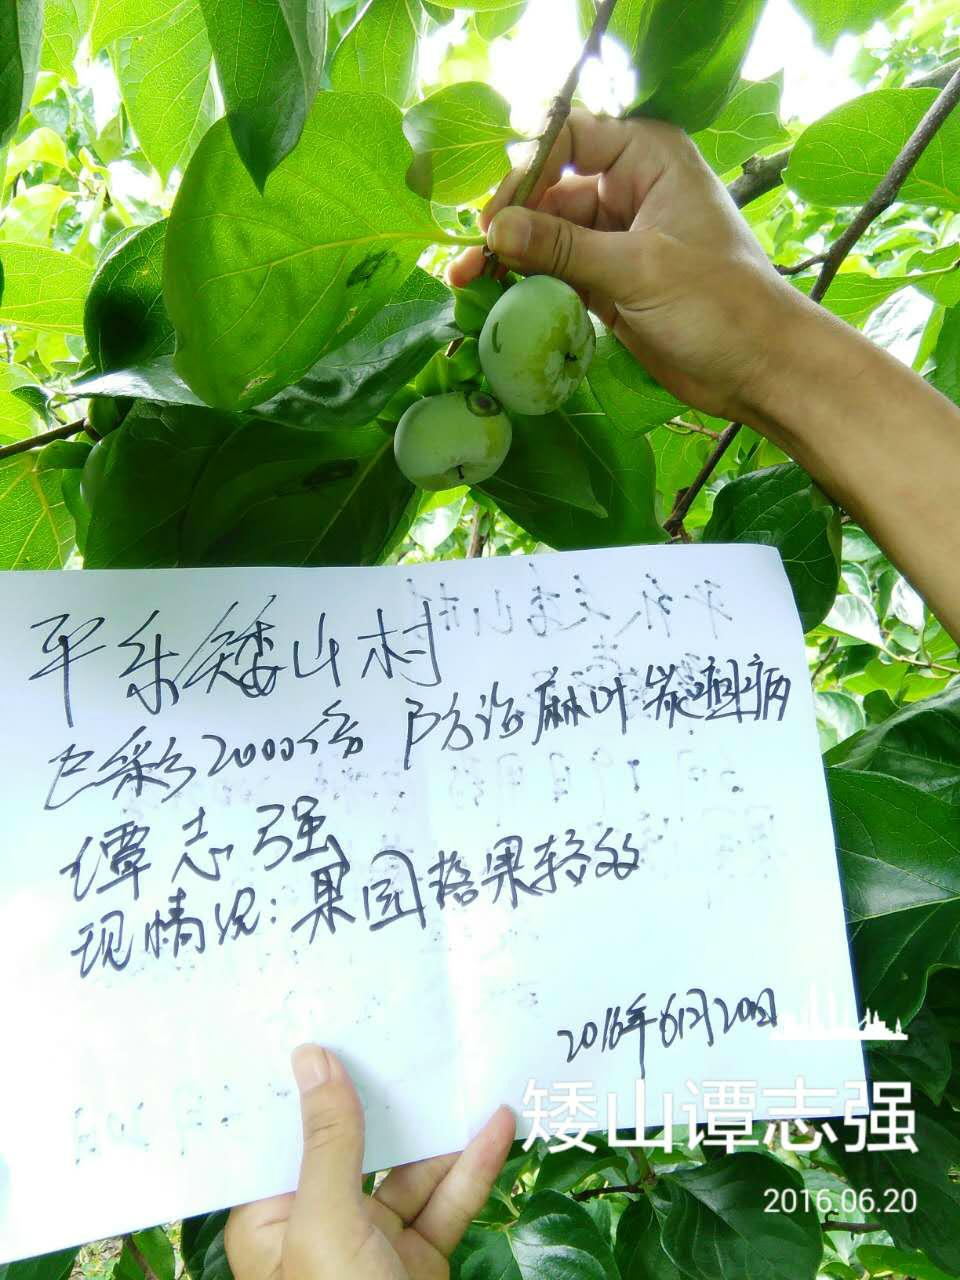 平乐矮山村
巴彩2000倍 防治麻叶炭疽病
谭志强
现情况:果园落果轻微
2016年6月20日
矮山谭志强
2016.06.20